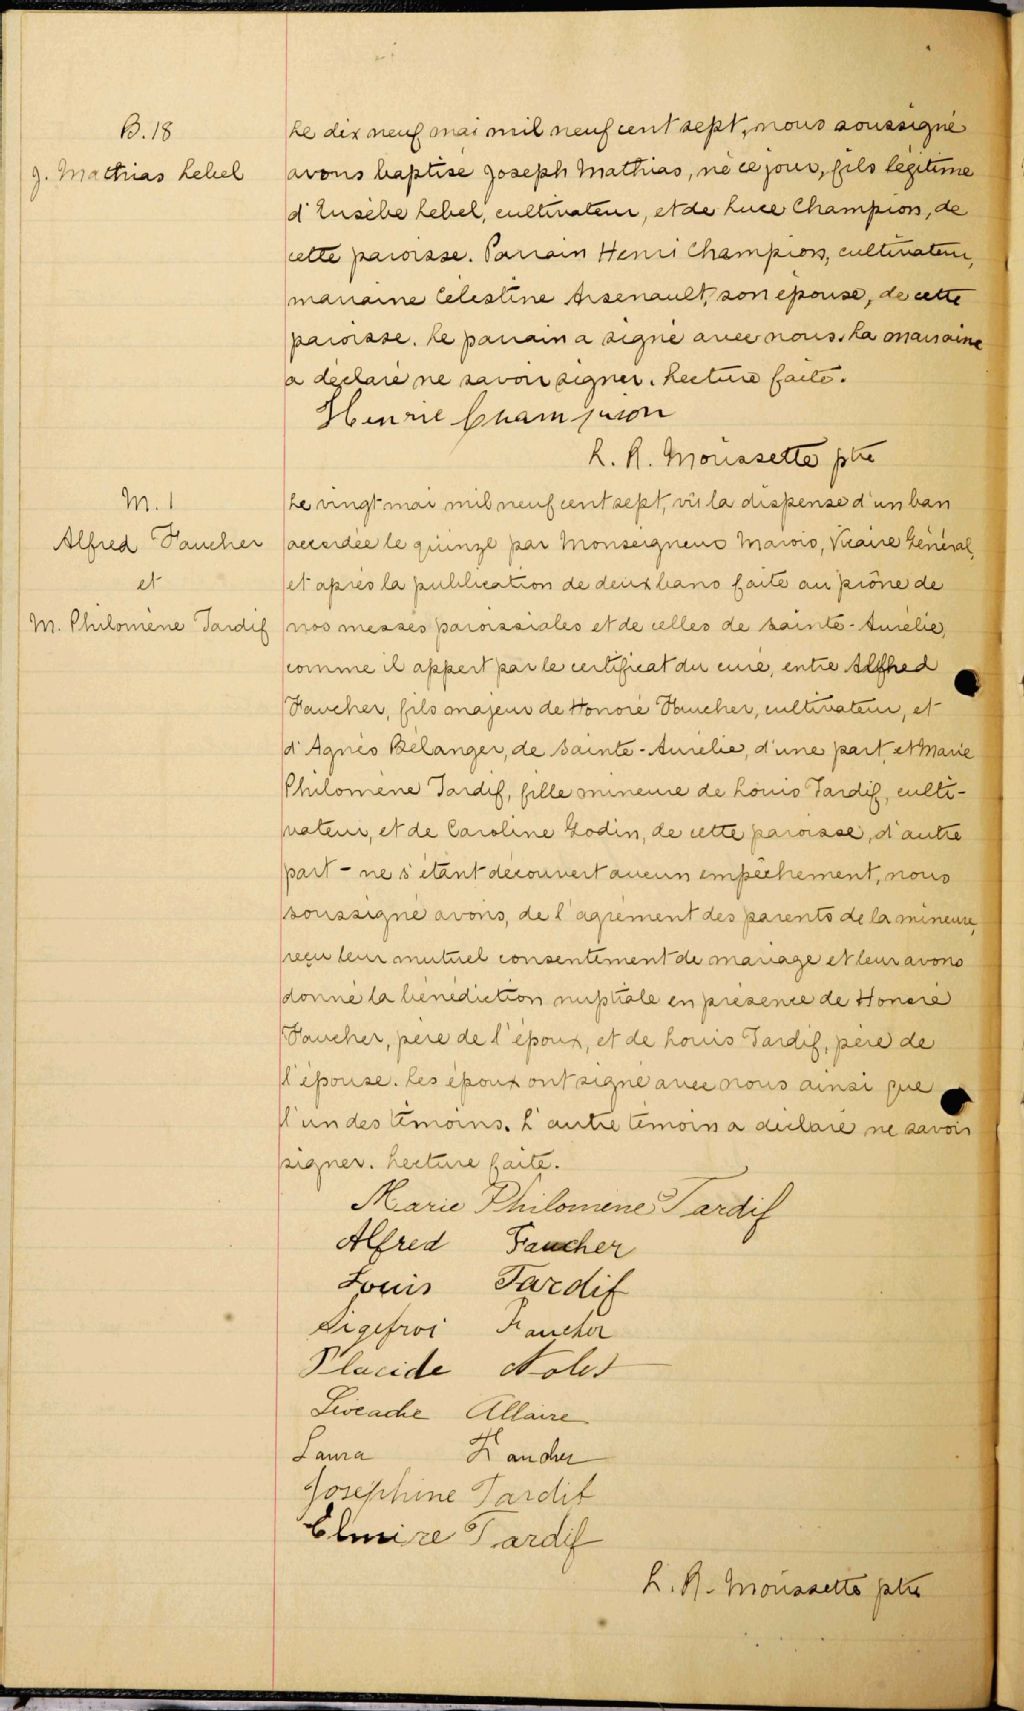 B.18
J. Mathias Lebel
Le dix neuf mai mil neuf cent sept, nous soussigné
avons baptisé Joseph Mathias, né ce jour, fils légitime
d'Eusèbe Lebel, cultivateur, et de Luce Champion, de
cette paroisse. Parrain Henri Champion, cultivateur,
marraine Célestine Arsenault, son épouse, de cette
paroisse. Le parrain a signé avec nous. La marraine
a déclaré ne savoir signer. Lecture faite.
Henrie Champion
L. R. Moussette ptre
M. 1
Alfred Faucher
et
M. Philomène Tardif
Le vingt mai mil neuf cent sept, vû la dispense d'un ban
accordée le quinze par Monseigneur Marois, Vicaire Général,
et après la publication de deux bans faite au prône de
nos messes paroissiales et de celles de Sainte-Aurélie,
comme il appert par le certificat du curé, entre Alfred
Faucher, fils majeur de Honoré Faucher, cultivateur, et
d'Agnès Bélanger, de Sainte-Aurélie, d'une part, et Marie
Philomène Tardif, fille mineure de Louis Tardif, culti-
vateur, et de Caroline Godin, de cette paroisse, d'autre
part - ne s'étant découvert aucun empêchement, nous
soussigné avons, de l'agrément des parents de la mineure,
reçu leur mutuel consentement de mariage et leur avons
donné la bénédiction nuptiale en présence de Honoré
Faucher, père de l'époux, et de Louis Tardif, père de
l'épouse. Les époux ont signé avec nous ainsi que
l'un des témoins. L'autre témoin a déclaré ne savoir
signer. Lecture faite.
Marie Philomène Tardif
Alfred Faucher
Louis Tardif
Sigefroi Faucher
Placide Nolet
Léocadie Allaire
Laura Faucher
Josephine Tardif
Elmire Tardif
L. R. Moussette ptre